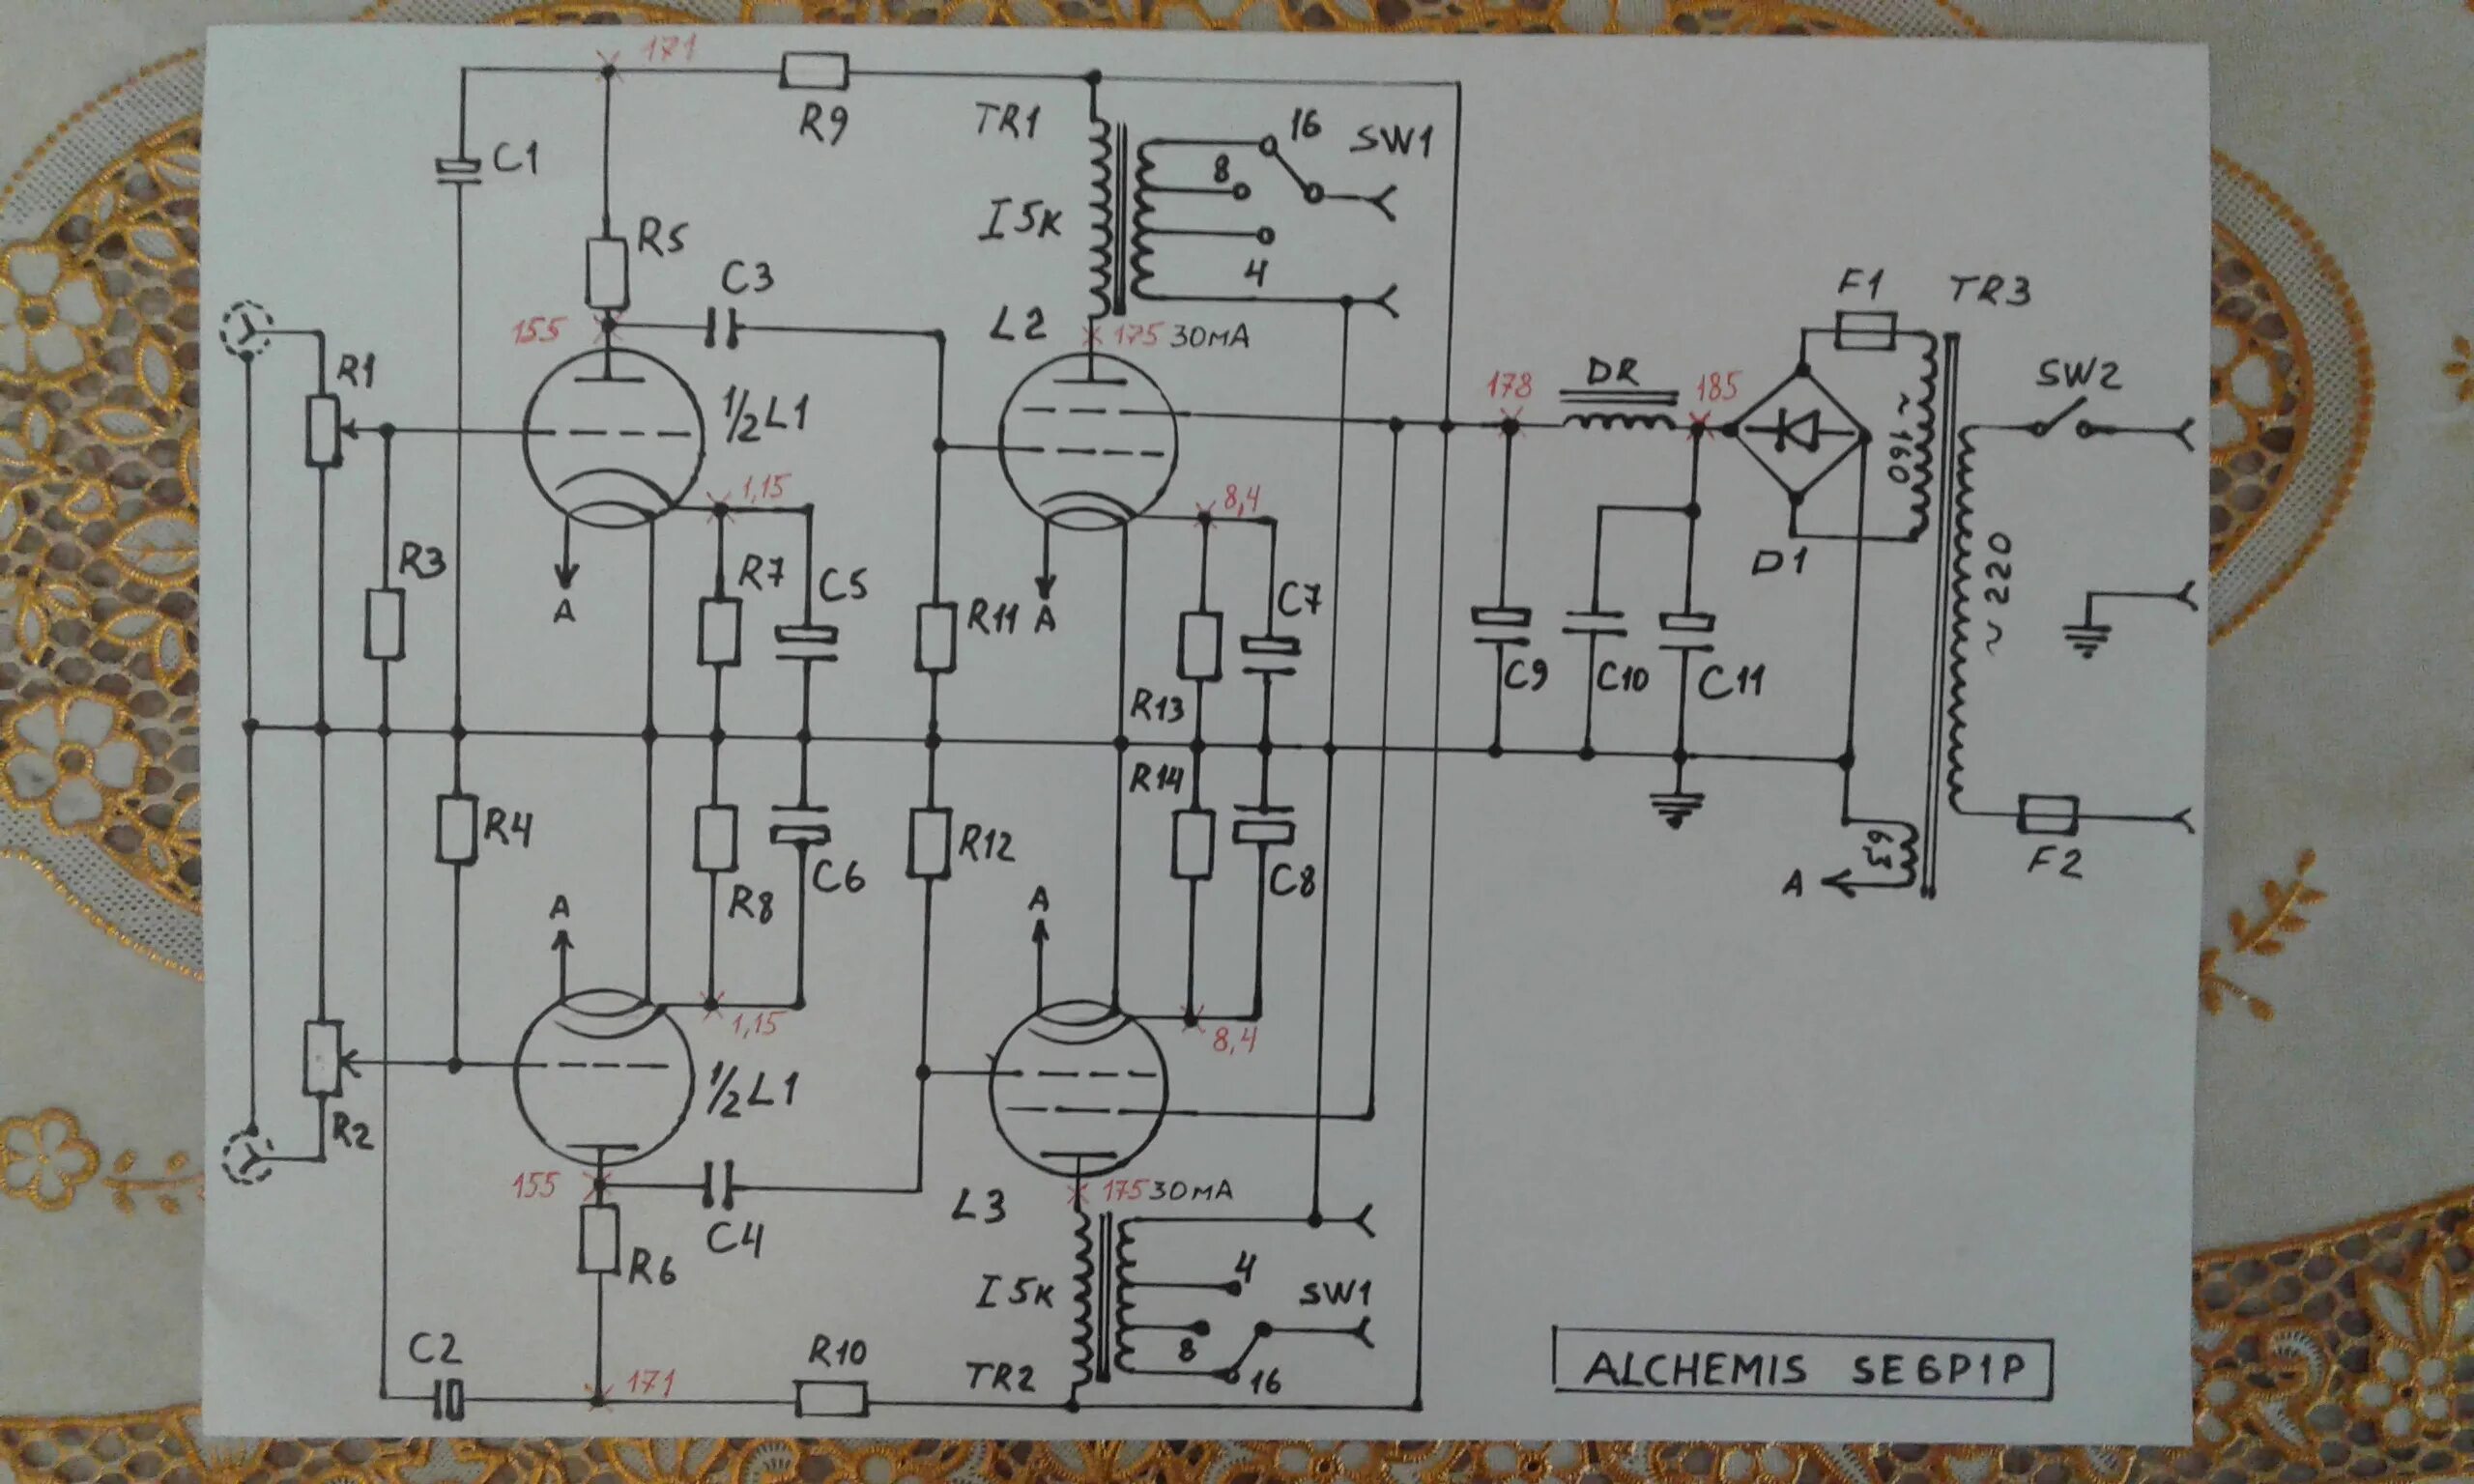 171
R9
TR1
16
SW1
C1
8
I5K
R5
4
C3
F1
TR3
155
L2
175 30мA
R1
½L1
178
DR
185
SW2
~160
1,15
8,4
D1
R3
R7
C5
A
R11
A
C7
~220
R13
C9
C10
C11
R14
R4
R12
C6
C8
6,3
A
F2
A
R8
A
1,15
8,4
½L1
R2
155
175 30мA
L3
C4
R6
4
I5K
SW1
C2
R10
8
171
TR2
16
ALCHEMIS SE6P1P